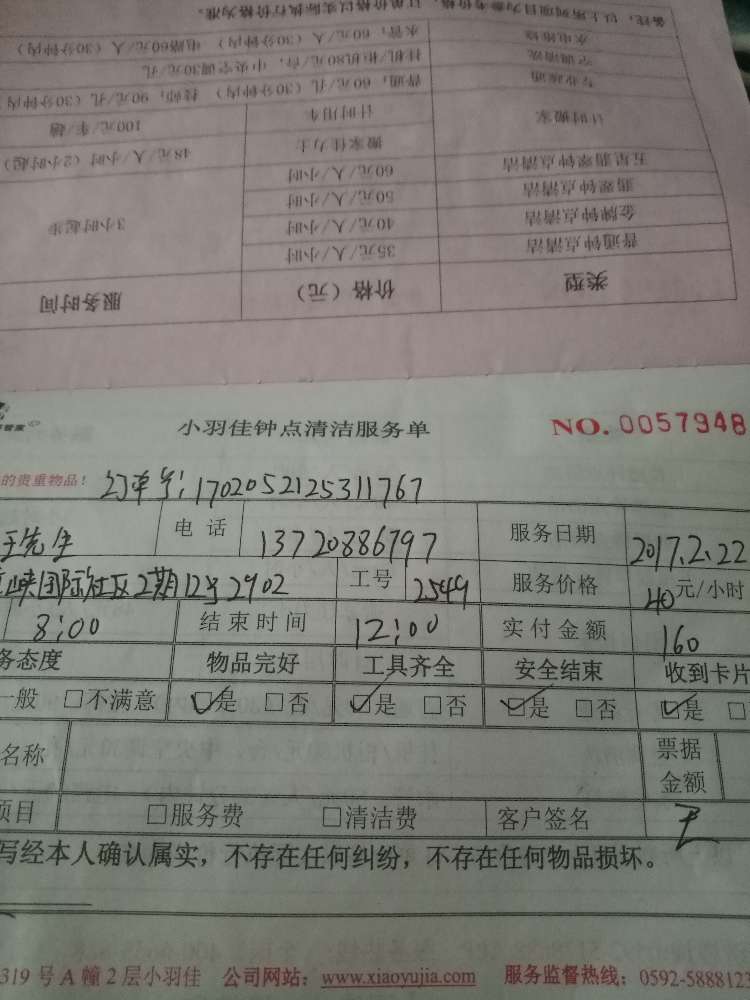 备注：以上所列项目为参考价格，订单价格以实际执行价格为准。
水电检修 水管：60元/人（30分钟内） 电路60元/人（30分钟内）
空调清洗 挂机/柜机80元/台，中央空调30元/孔
专业疏通 普通：60元/孔（30分钟内） 技师：90元/孔（30分钟内
计时搬家 计时用车 100元/车/趟
搬家佳力士 48元/人/小时（2小时起）
五星翡翠钟点清洁 60元/人/小时
翡翠钟点清洁 50元/人/小时
金牌钟点清洁 40元/人/小时 3小时起步
普通钟点清洁 35元/人/小时
类型 价格（元） 服务时间
小羽佳钟点清洁服务单 NO. 0057948
的贵重物品！ 订单号：1702052125311767
王先生 电话 13720886797 服务日期 2017.2.22
国际社区2期12号2902 工号 2549 服务价格 40元/小时
8:00 结束时间 12:00 实付金额 160
务态度 物品完好 工具齐全 安全结束 收到卡片
一般 □不满意 ☑是 □否 ☑是 □否 ☑是 □否 ☑是 □
名称 票据金额
项目 □服务费 □清洁费 客户签名 王
写经本人确认属实，不存在任何纠纷，不存在任何物品损坏。
319号A幢2层小羽佳 公司网站：www.xiaoyujia.com 服务监督热线：0592-5888123